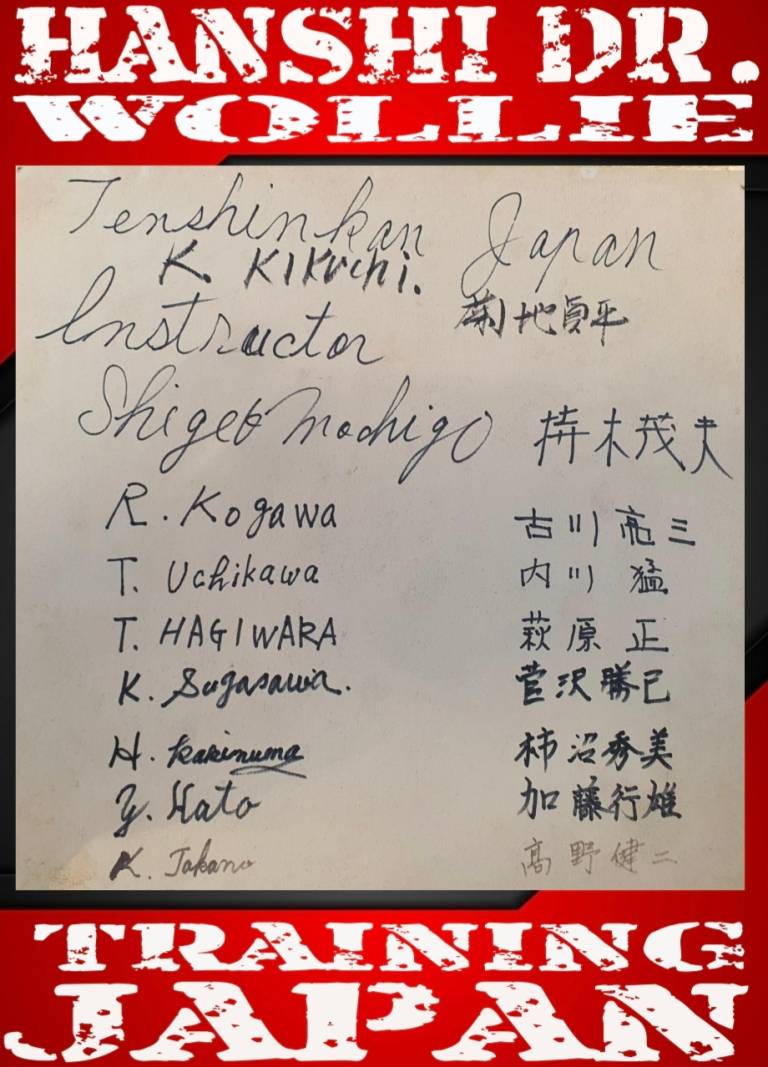 HANSHI DR.
WOLLIE
Tenshinkan Japan
K. KIKUCHI.
菊地貞平
Instructor
Shigeo Mochigo 木茂夫
R. Kogawa 古川 亮三
T. Uchikawa 内川 猛
T. HAGIWARA 萩原 正
K. Sugasawa. 菅沢勝己
H. Kakinuma 柿沼秀美
Y. Kato 加藤行雄
K. Takano 高野健二
TRAINING
JAPAN